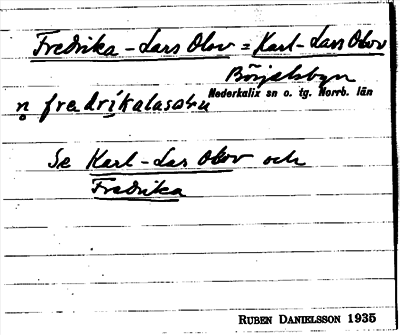 Fredrika - Lars Olov = Karl - Lars Olov
Börjelsbyn
Nederkalix sn o. tg. Norrb. län
Se Karl - Lars Olov och
Fredrika
RUBEN DANIELSSON 1935